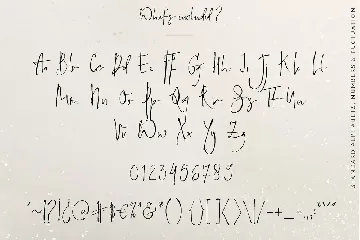 What's included?
Aa Bb Cc Dd Ee Ff Gg Hh Ii Jj Kk Ll
Mm Nn Oo Pp Qq Rr Ss Tt Uu
Vv Ww Xx Yy Zz
0123456789
STANDARD ALPHABETS, NUMBERS & PUNCTUATION